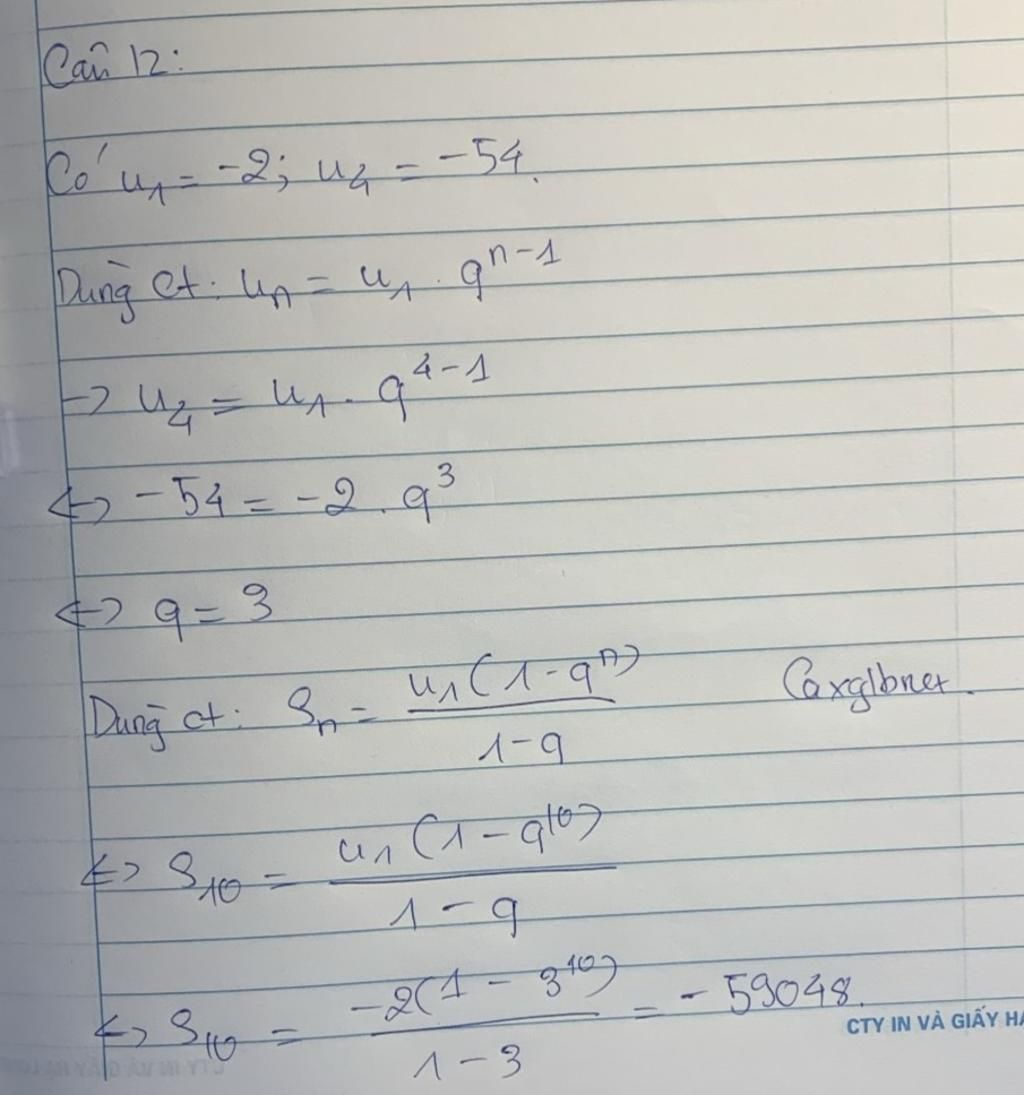 Câu 12:
Có u₁ = -2; u₄ = -54.
Dùng ct: uₙ = u₁ . qⁿ⁻¹
→ u₄ = u₁ . q⁴⁻¹
↔ -54 = -2 . q³
↔ q = 3
Dùng ct: Sₙ = u₁(1 - qⁿ) / 1 - q
↔ S₁₀ = u₁(1 - q¹⁰) / 1 - q
↔ S₁₀ = -2(1 - 3¹⁰) / 1 - 3 = -59048.
CTY IN VÀ GIẤY HẢ